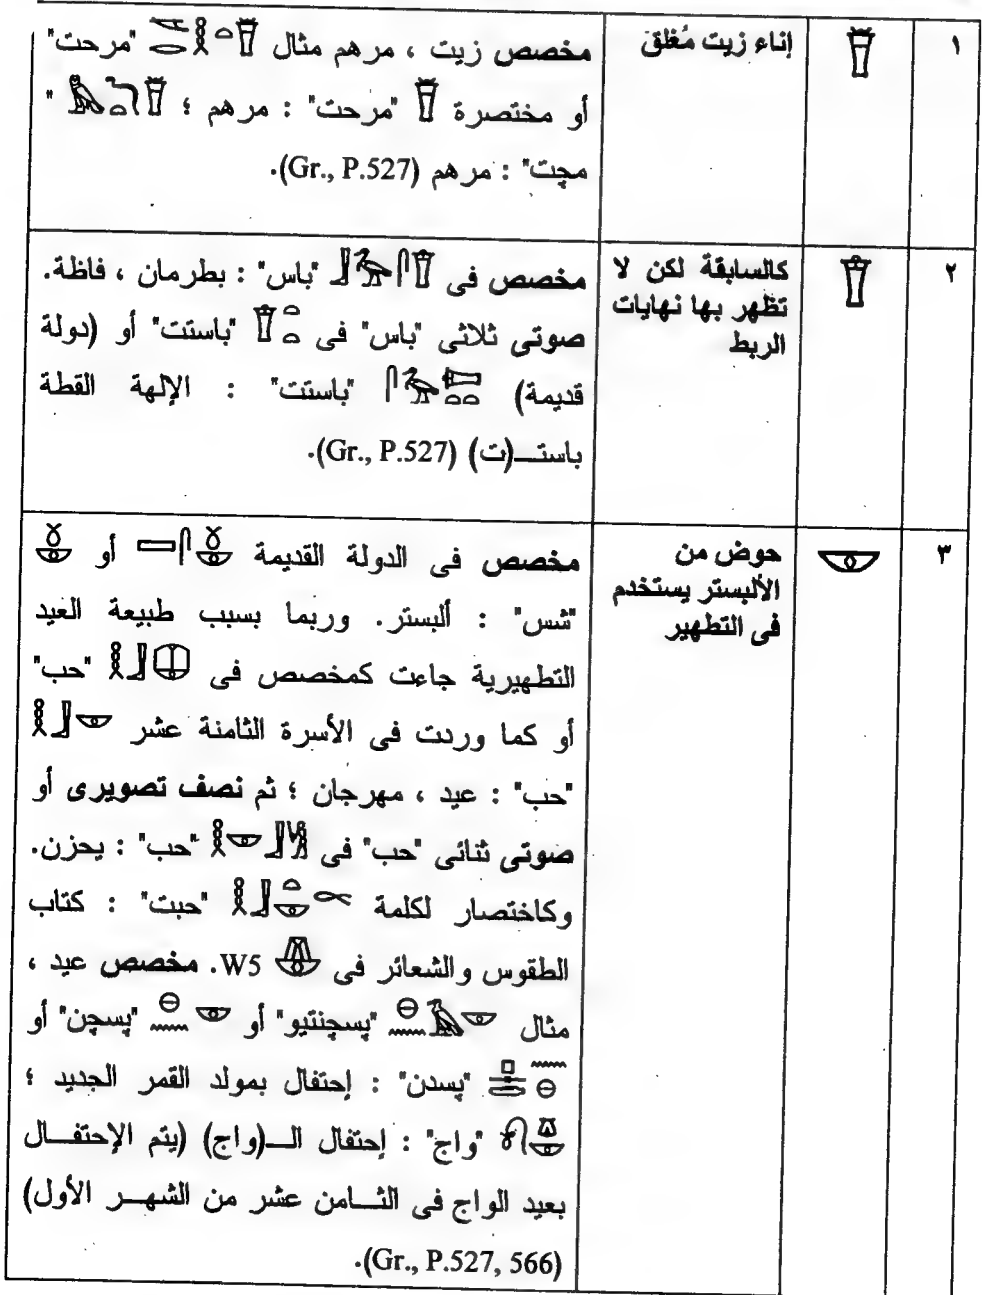 ١
إناء زيت مُغلق
مخصص زيت ، مرهم مثال "مرحت"
أو مختصرة "مرحت" : مرهم ؛ "
مچت" : مرهم (Gr., P.527).
٢
كالسابقة لكن لا
تظهر بها نهايات
الربط
مخصص فى "باس" : بطرمان ، فاظة.
صوتى ثلاثى "باس" فى "باستت" أو (دولة
قديمة) "باستت" : الإلهة القطة
باستـــ(ت) (Gr., P.527).
٣
حوض من
الألبستر يستخدم
فى التطهير
مخصص فى الدولة القديمة أو
"شس" : ألبستر. وربما بسبب طبيعة العيد
التطهيرية جاءت كمخصص فى "حب"
أو كما وردت فى الأسرة الثامنة عشر
"حب" : عيد ، مهرجان ؛ ثم نصف تصويرى أو
صوتى ثنائى "حب" فى "حب" : يحزن.
وكاختصار لكلمة "حبت" : كتاب
الطقوس والشعائر فى W5. مخصص عيد ،
مثال "پسچنتيو" أو "پسچن" أو
"پسدن" : إحتفال بمولد القمر الجديد ؛
"واج" : إحتفال الـــ(واج) (يتم الإحتفـــال
بعيد الواج فى الثـــامن عشر من الشهـــر الأول)
(Gr., P.527, 566).